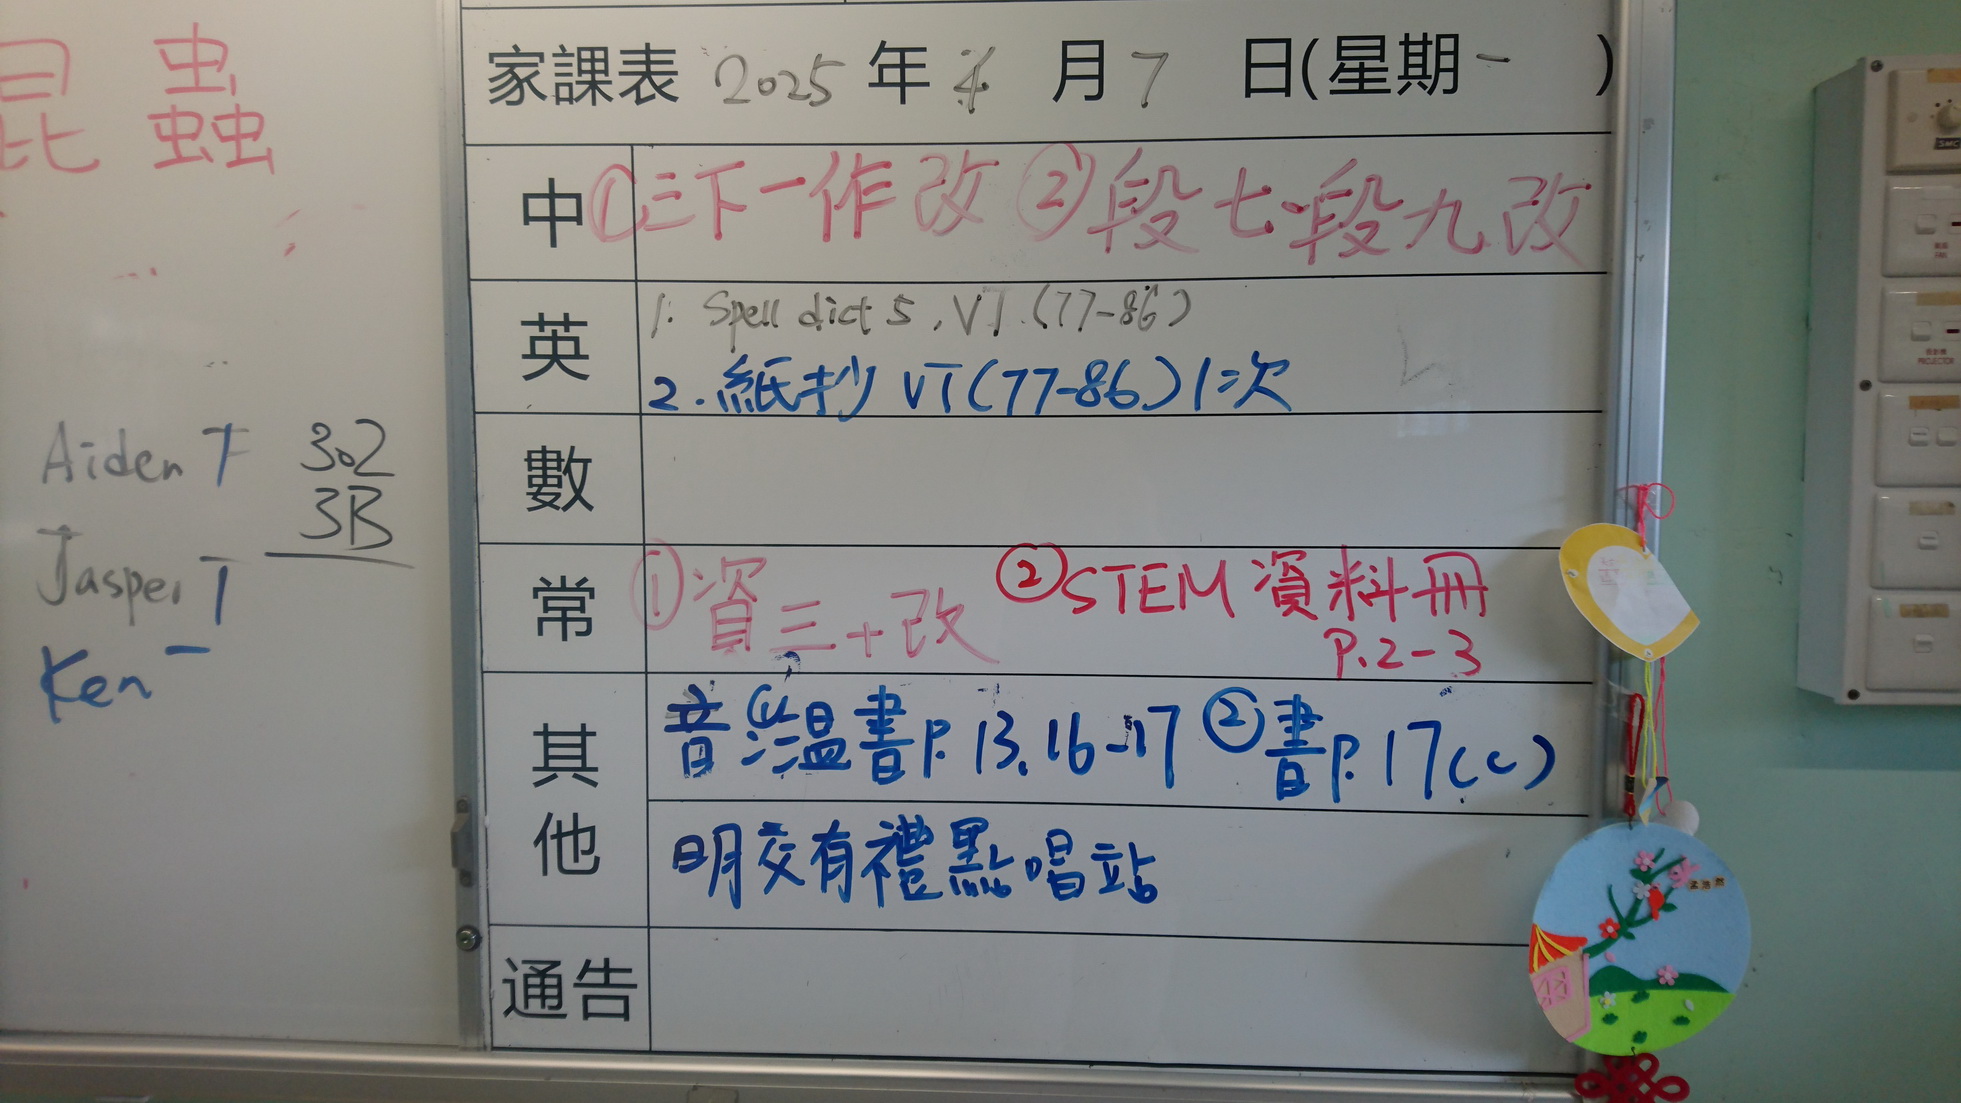 昆蟲
Aiden T 302
3B
Jasper T
Ken T
家課表 2025 年 4 月 7 日(星期一 )
中 ①三下一作改 ②段七、段九改
英 1. Spell dict 5, VT (77-86)
2. 紙抄 VT(77-86) 1次
數
常 ①資三+改 ②STEM 資料冊
P.2-3
其他 音①溫書P.13,16-17 ②書P.17(C)
明交有禮點唱站
通告
PROJECTOR